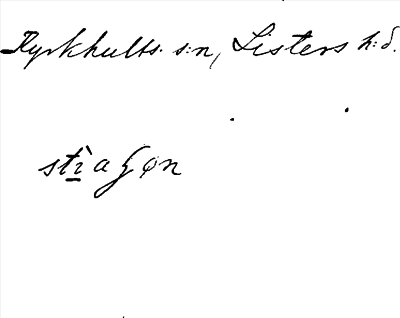 Kyrkhults. s:n, Listers h:d.
stìaʒøn